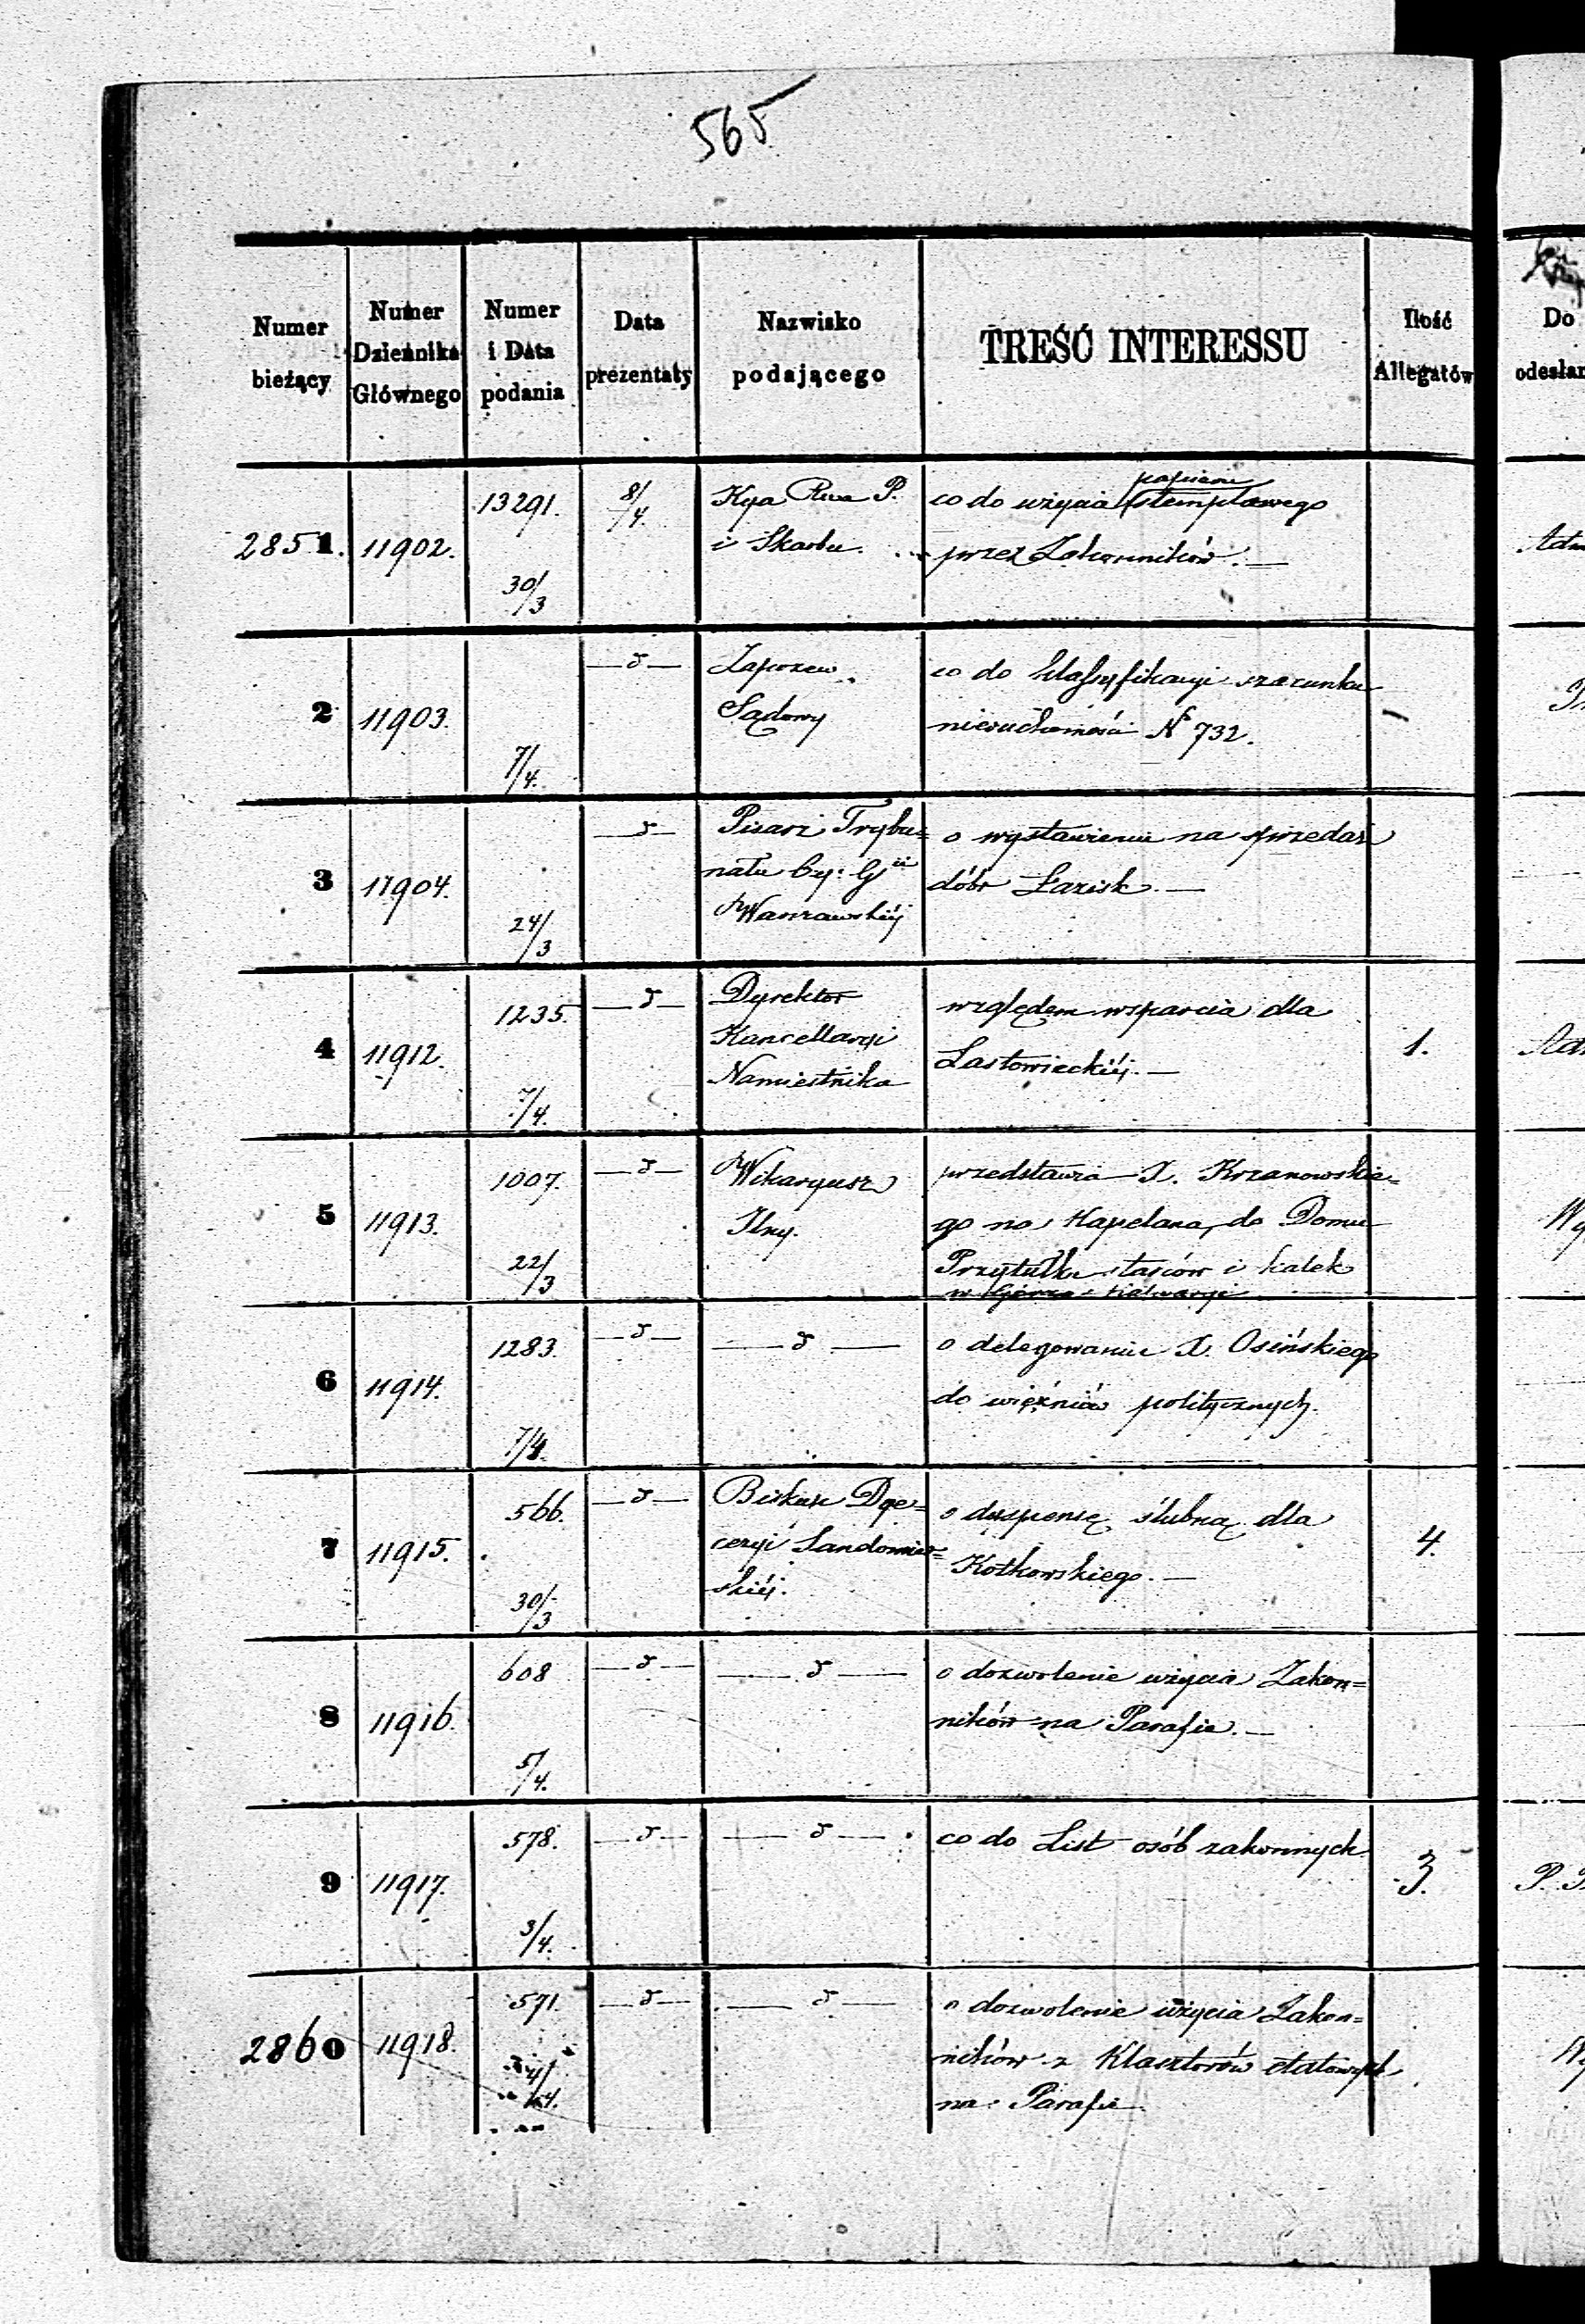 565
Numer bieżący
Numer Dziennika Głównego
Numer i Data podania
Data prezentaty
Nazwisko podającego
TREŚĆ INTERESSU
Ilość Allegatów
Do odesłan
2851. 11902. 13291. 30/3 8/4.
Kya Rwa P.
i Skarbu.
co do użycia papieru stemplowego
przez Zakonników. —
Adm
2 11903. 7/4. — d —
Zapozew
Sądowy
co do klassyfikacyi szacunku
nieruchomości No 732.
3 11904. 24/3 — d —
Pisarz Trybu=
nału Cy: Gii
Warszawskiéj
o wystawieniu na sprzedaż
dóbr Łazisk. —
4 11912. 1235. 7/4. — d —
Dyrektor
Kancellaryi
Namiestnika
względem wsparcia dla
Lastowieckiéj. —
1.
Adm
5 11913. 1007. 22/3 — d —
Wikaryusz
Jlny.
przedstawia X. Krzanowskie=
go na Kapelana do Domu
Przytułku starców i kalek
w Górze Kalwaryi
Wy
6 11914. 1283. 7/4. — d —
— d —
o delegowaniu X. Osińskiego
do więźniów politycznych.
7 11915. 566. 30/3 — d —
Biskup Dye=
cezyi Sandomier=
skiéj.
o dyspensę ślubną dla
Kotkowskiego. —
4.
8 11916. 608 5/4. — d —
— d —
o dozwolenie użycia Zakon=
ników na Parafie. —
9 11917. 578. 3/4. — d —
— d —
co do List osób zakonnych
3.
2860 11918. 571. 4/4. — d —
— d —
o dozwolenie użycia Zakon=
ników z Klasztorów etatowych
na Parafie
Wy